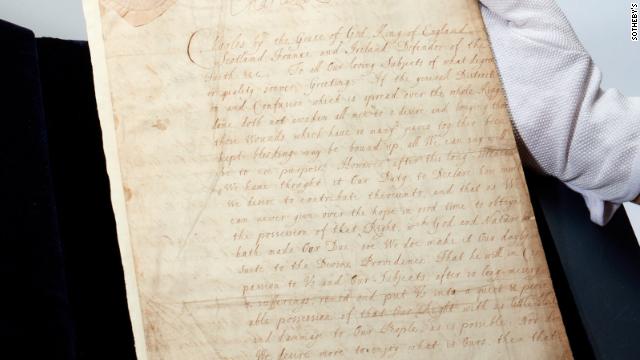 Charles by the Grace of God, King of England
Scotland France and Ireland Defender of the
Faith &c. To all Our loving Subjects of what degree
or quality soever Greeting. If the general Distract
on and Confusion which is spread over the whole King
dome doth not awaken all men to a desire and longing that
those Wounds which have so many years together been
kept bleeding may be bound up, all We can say will
be to no purpose. However after this long silence
We have thought it Our Duty to Declare how much
we desire to contribute thereunto, and that as We
can never give over the hope in good time to obtaine
the possession of that Right, wch God and Nature
hath made Our Due, soe We do make it Our dayly
Suite to the Divine Providence That he will in Com
passion to Us and Our Subjects after so long misery
& sufferings, remit and put Us into a quiet & peace
able possession of that Our Right with as little blood
and damage to Our People, as is possible. Nor do
We desire more to enjoy what is Ours, then that
SOTHEBY'S